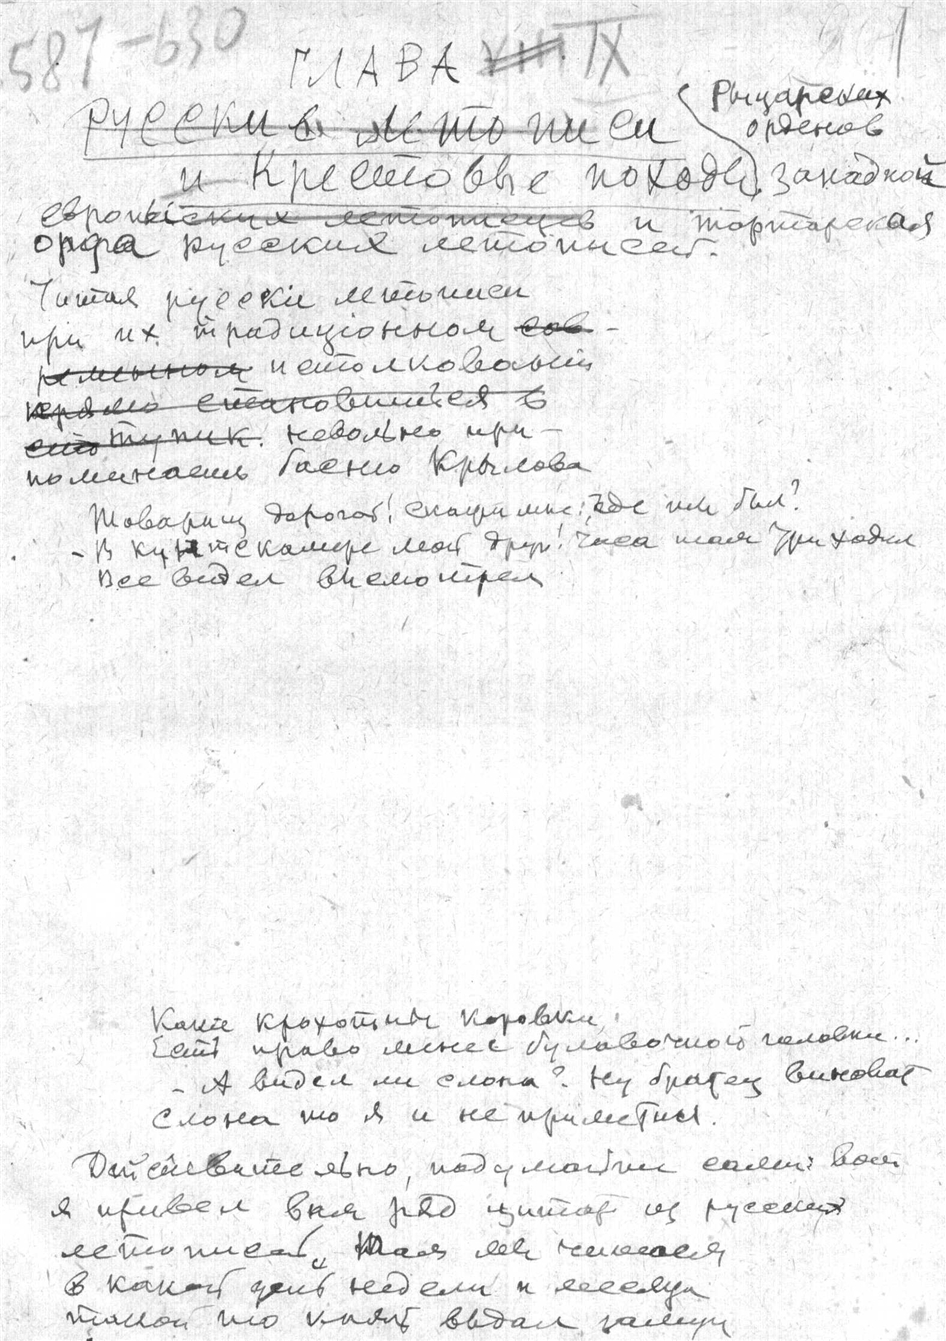 587-630
ГЛАВА VIII IX
Русскиè летописи
Рыцарских
орденов
и Крестовые походы западной
европейских летописцев и тортарская
орда русских летописей.
Читая русскіе летописи
при их традиціонном сов-
ременном истолкованіи
прямо становишься в
тупик. невольно при-
поминаешь басню Крылова
Товарищ дорогой! скажи мне: где ты был?
- В кунтскамере мой друг! Часа там три ходил
Все видел высмотрел
Какие крохотныи коровки,
Есть право менее булавочной головки...
- А видел ли слона? Ну братец виноват
Слона то я и не приметил.
Действительно, подумайте сами: вот
я привел вам ряд цитат из русских
летописей, Там мы читаем
в какой день недели и месяца
такой то князь выдал замуж